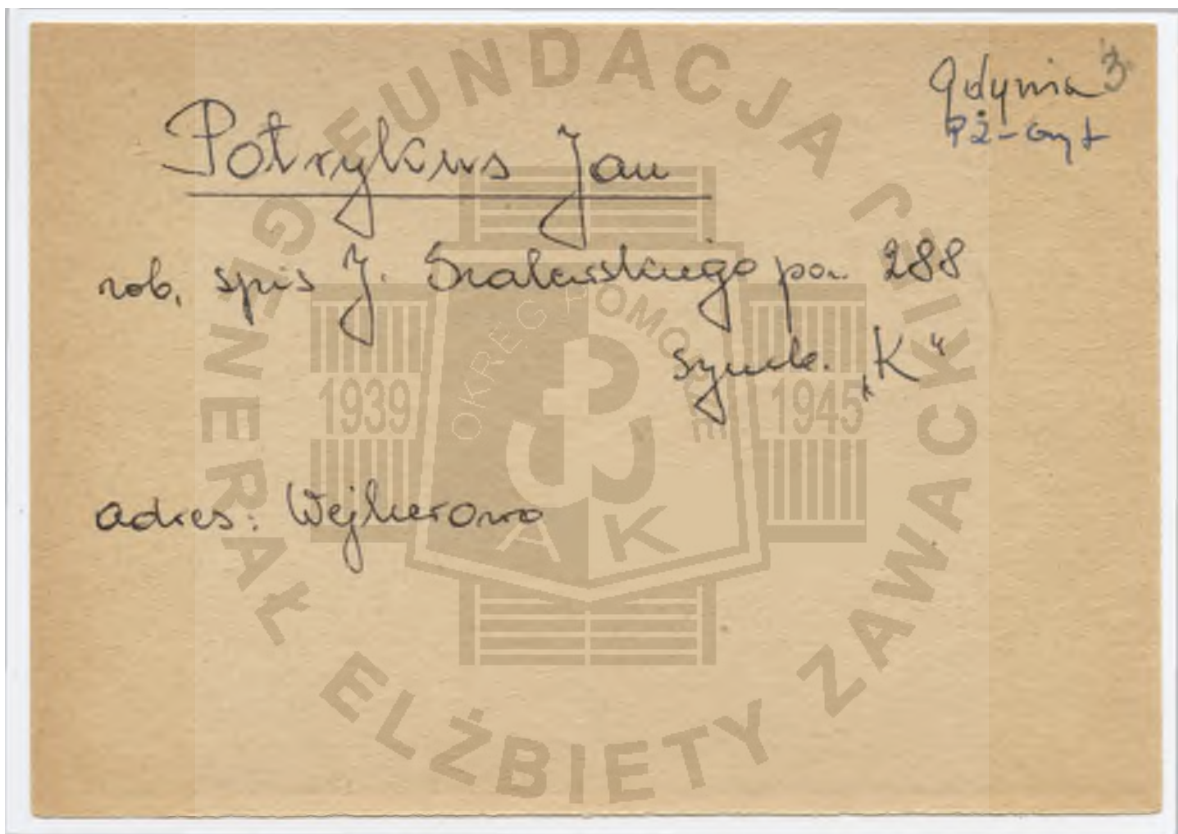 Gdynia 3
Potrykus Jan
rob. spis J. Szalewskiego poz. 288
symb. „K"
adres: Wejherowo
FUNDACJA
GENERAŁ ELŻBIETY ZAWACKIEJ
OKRĘG POMORZE
1939
1945
AK